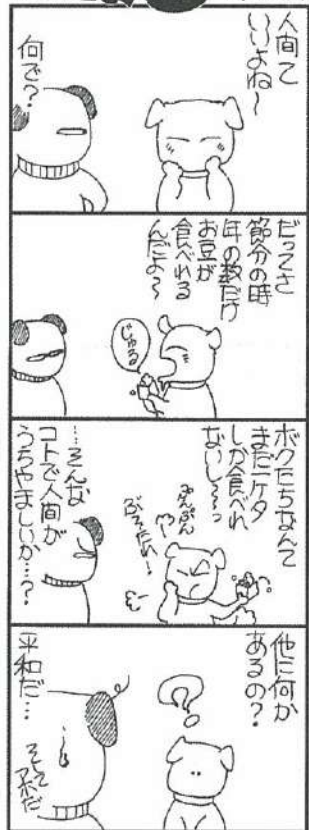 人間て
いいよね～
何で？
だってさ
節分の時
年の数だけ
お豆が
食べれる
んだよ～
じゅる
ボクたちなんて
まだ一ケタ
しか食べれ
ないし～っ
ぷんぷん
…そんな
コトで人間が
うらやましいか…？
他に何か
あるの？
平和だ…
そしてアホだ